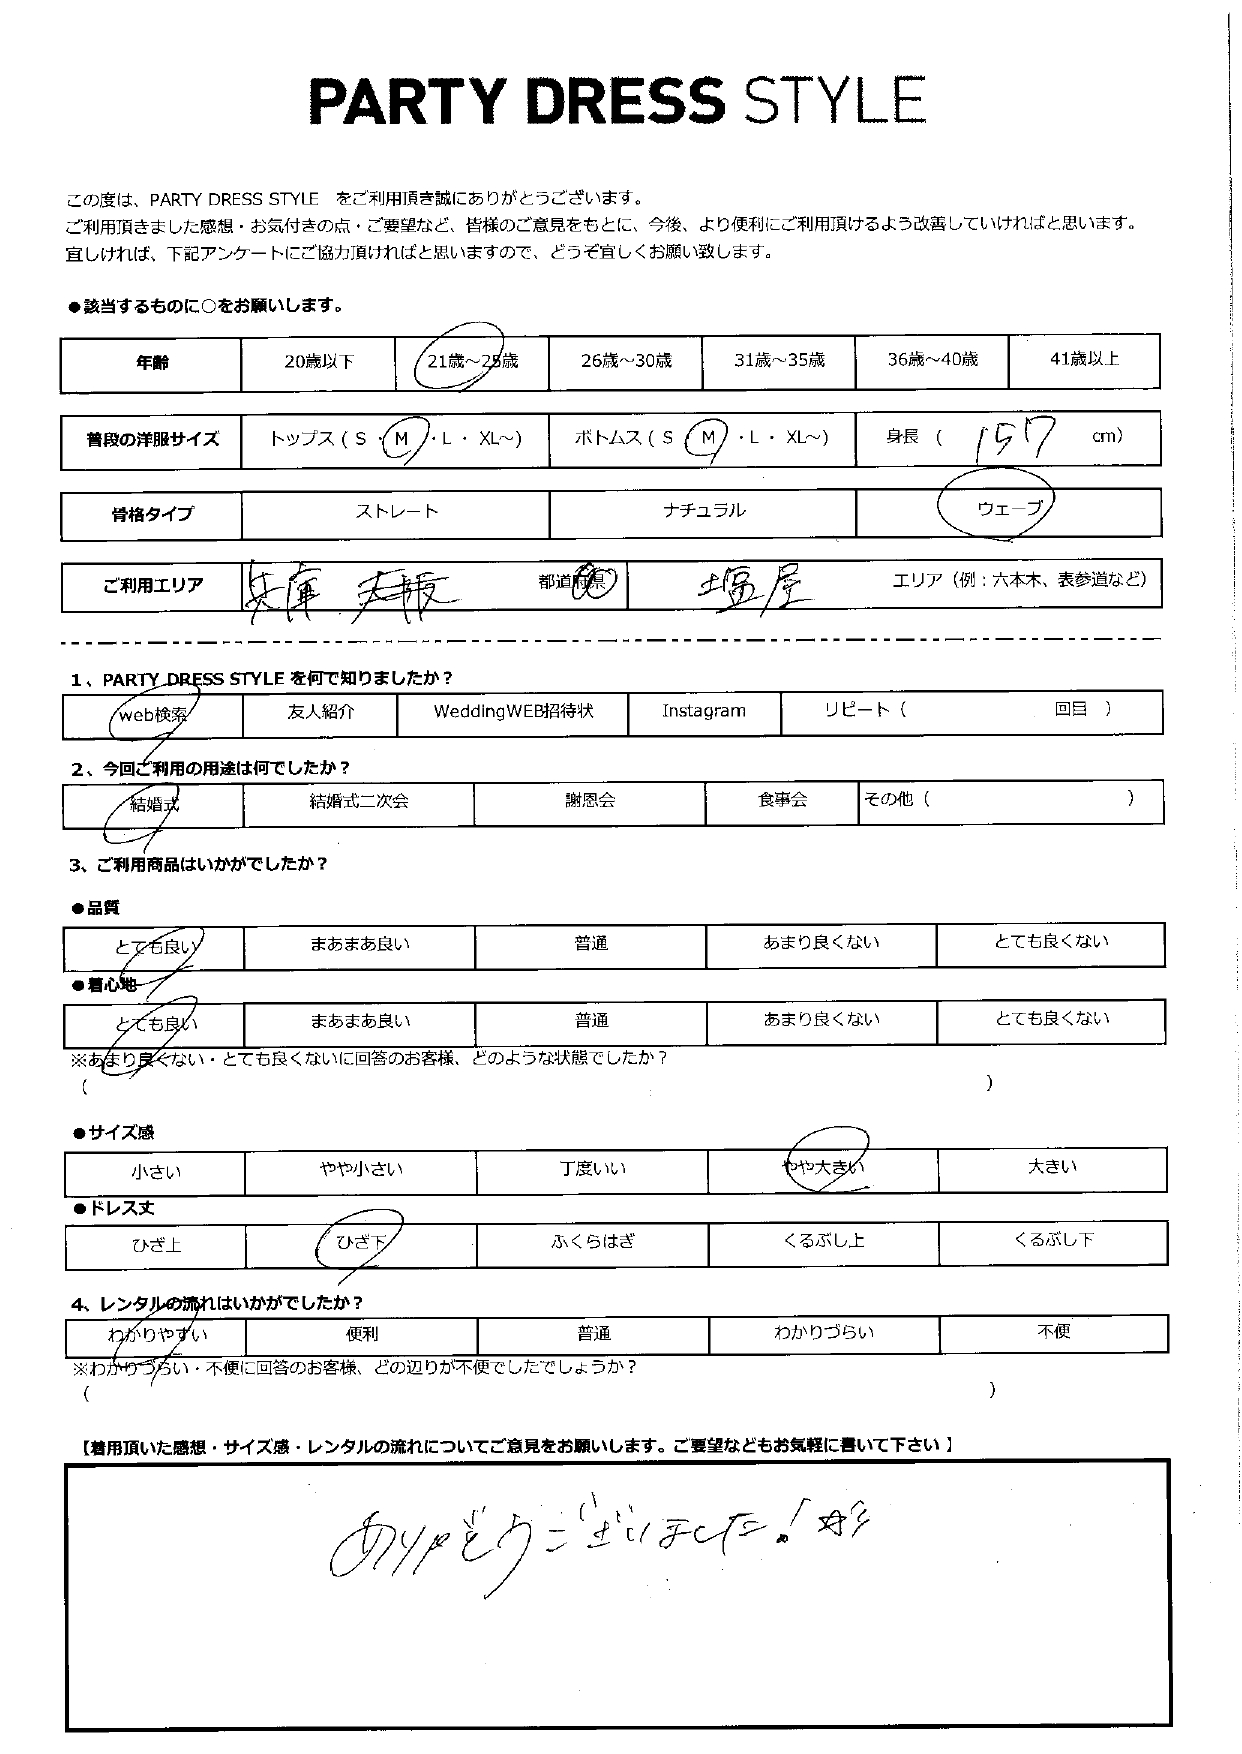 PARTY DRESS STYLE
この度は、PARTY DRESS STYLE をご利用頂き誠にありがとうございます。
ご利用頂きました感想・お気付きの点・ご要望など、皆様のご意見をもとに、今後、より便利にご利用頂けるよう改善していければと思います。
宜しければ、下記アンケートにご協力頂ければと思いますので、どうぞ宜しくお願い致します。
●該当するものに○をお願いします。
年齢 20歳以下 21歳～25歳 26歳～30歳 31歳～35歳 36歳～40歳 41歳以上
普段の洋服サイズ トップス ( S ・ M ・ L ・ XL～) ボトムス ( S M ・ L ・ XL～) 身長 ( 157 cm)
骨格タイプ ストレート ナチュラル ウェーブ
ご利用エリア 兵庫 大阪 都道府県 塩屋 エリア（例：六本木、表参道など）
1、PARTY DRESS STYLE を何で知りましたか？
web検索 友人紹介 WeddingWEB招待状 Instagram リピート（ 回目 ）
2、今回ご利用の用途は何でしたか？
結婚式 結婚式二次会 謝恩会 食事会 その他（ ）
3、ご利用商品はいかがでしたか？
●品質
とても良い まあまあ良い 普通 あまり良くない とても良くない
●着心地
とても良い まあまあ良い 普通 あまり良くない とても良くない
※あまり良くない・とても良くないに回答のお客様、どのような状態でしたか？
（ ）
●サイズ感
小さい やや小さい 丁度いい やや大きい 大きい
●ドレス丈
ひざ上 ひざ下 ふくらはぎ くるぶし上 くるぶし下
4、レンタルの流れはいかがでしたか？
わかりやすい 便利 普通 わかりづらい 不便
※わかりづらい・不便に回答のお客様、どの辺りが不便でしたでしょうか？
（ ）
【着用頂いた感想・サイズ感・レンタルの流れについてご意見をお願いします。ご要望などもお気軽に書いて下さい】
ありがとうございました！